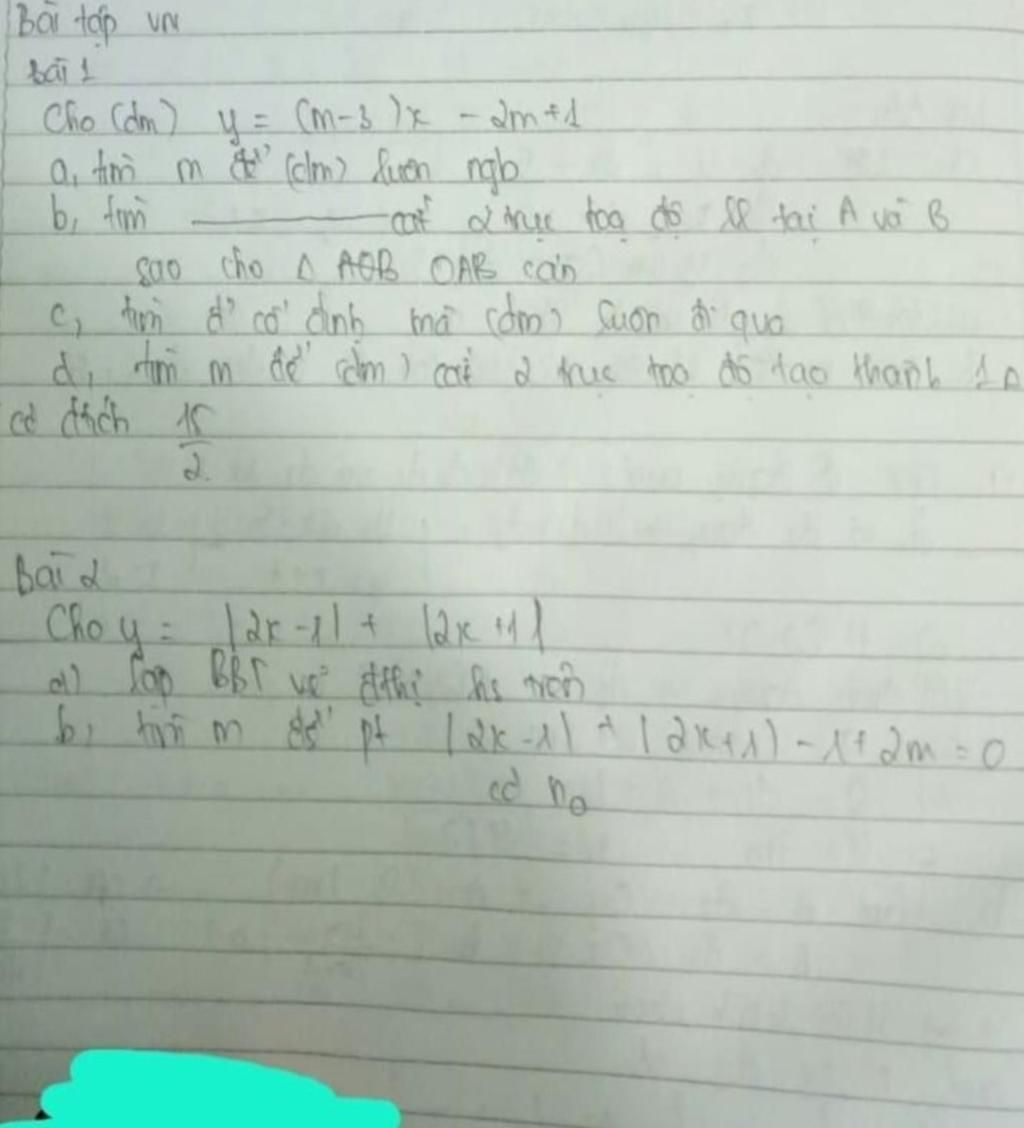 Bài tập VN
bài 1
Cho (dm) y = (m-3)x - 2m+1
a, tìm m để (dm) luôn ngb
b, tìm ———— cắt 2 trục toạ độ lll tại A và B
sao cho Δ AOB OAB cân
c, tìm đ' cố định mà (dm) luôn đi qua
d, tìm m để (dm) cắt 2 trục toạ độ tạo thành 1 Δ
có đtích 15/2
Bài 2
Cho y = |2x-1| + |2x+1|
a) lập BBT vẽ đthị hs trên
b, tìm m để pt |2x-1| + |2x+1| - 1 + 2m = 0
có n₀